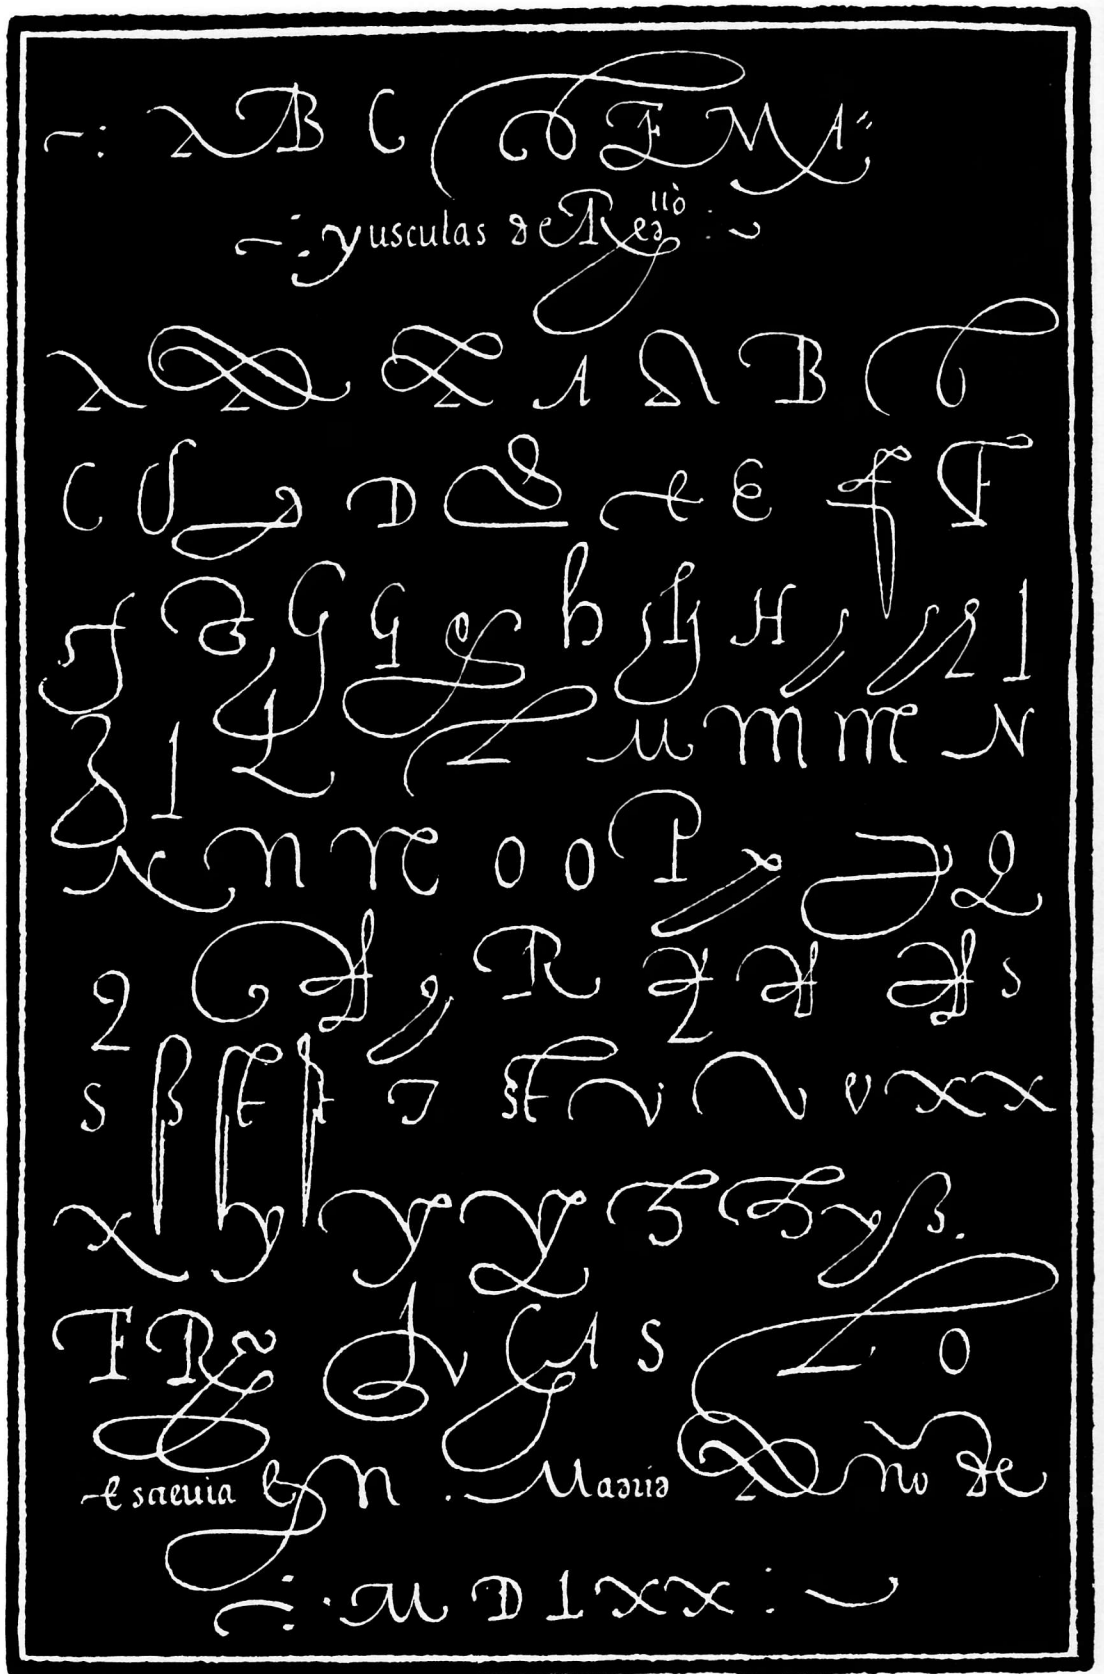 ABC dE MA
yusculas de Redllo
A A A A A B B
C C D D D e E f F
F G G G G h H H I I I I
I L L M M M N
N N N O O P P P Q
Q R R R R R S
S ß t T st V V v X X
X y y y Z Z y ß.
FR LVCAS LO
Escreuia EN Madrid Año de
MDLXX